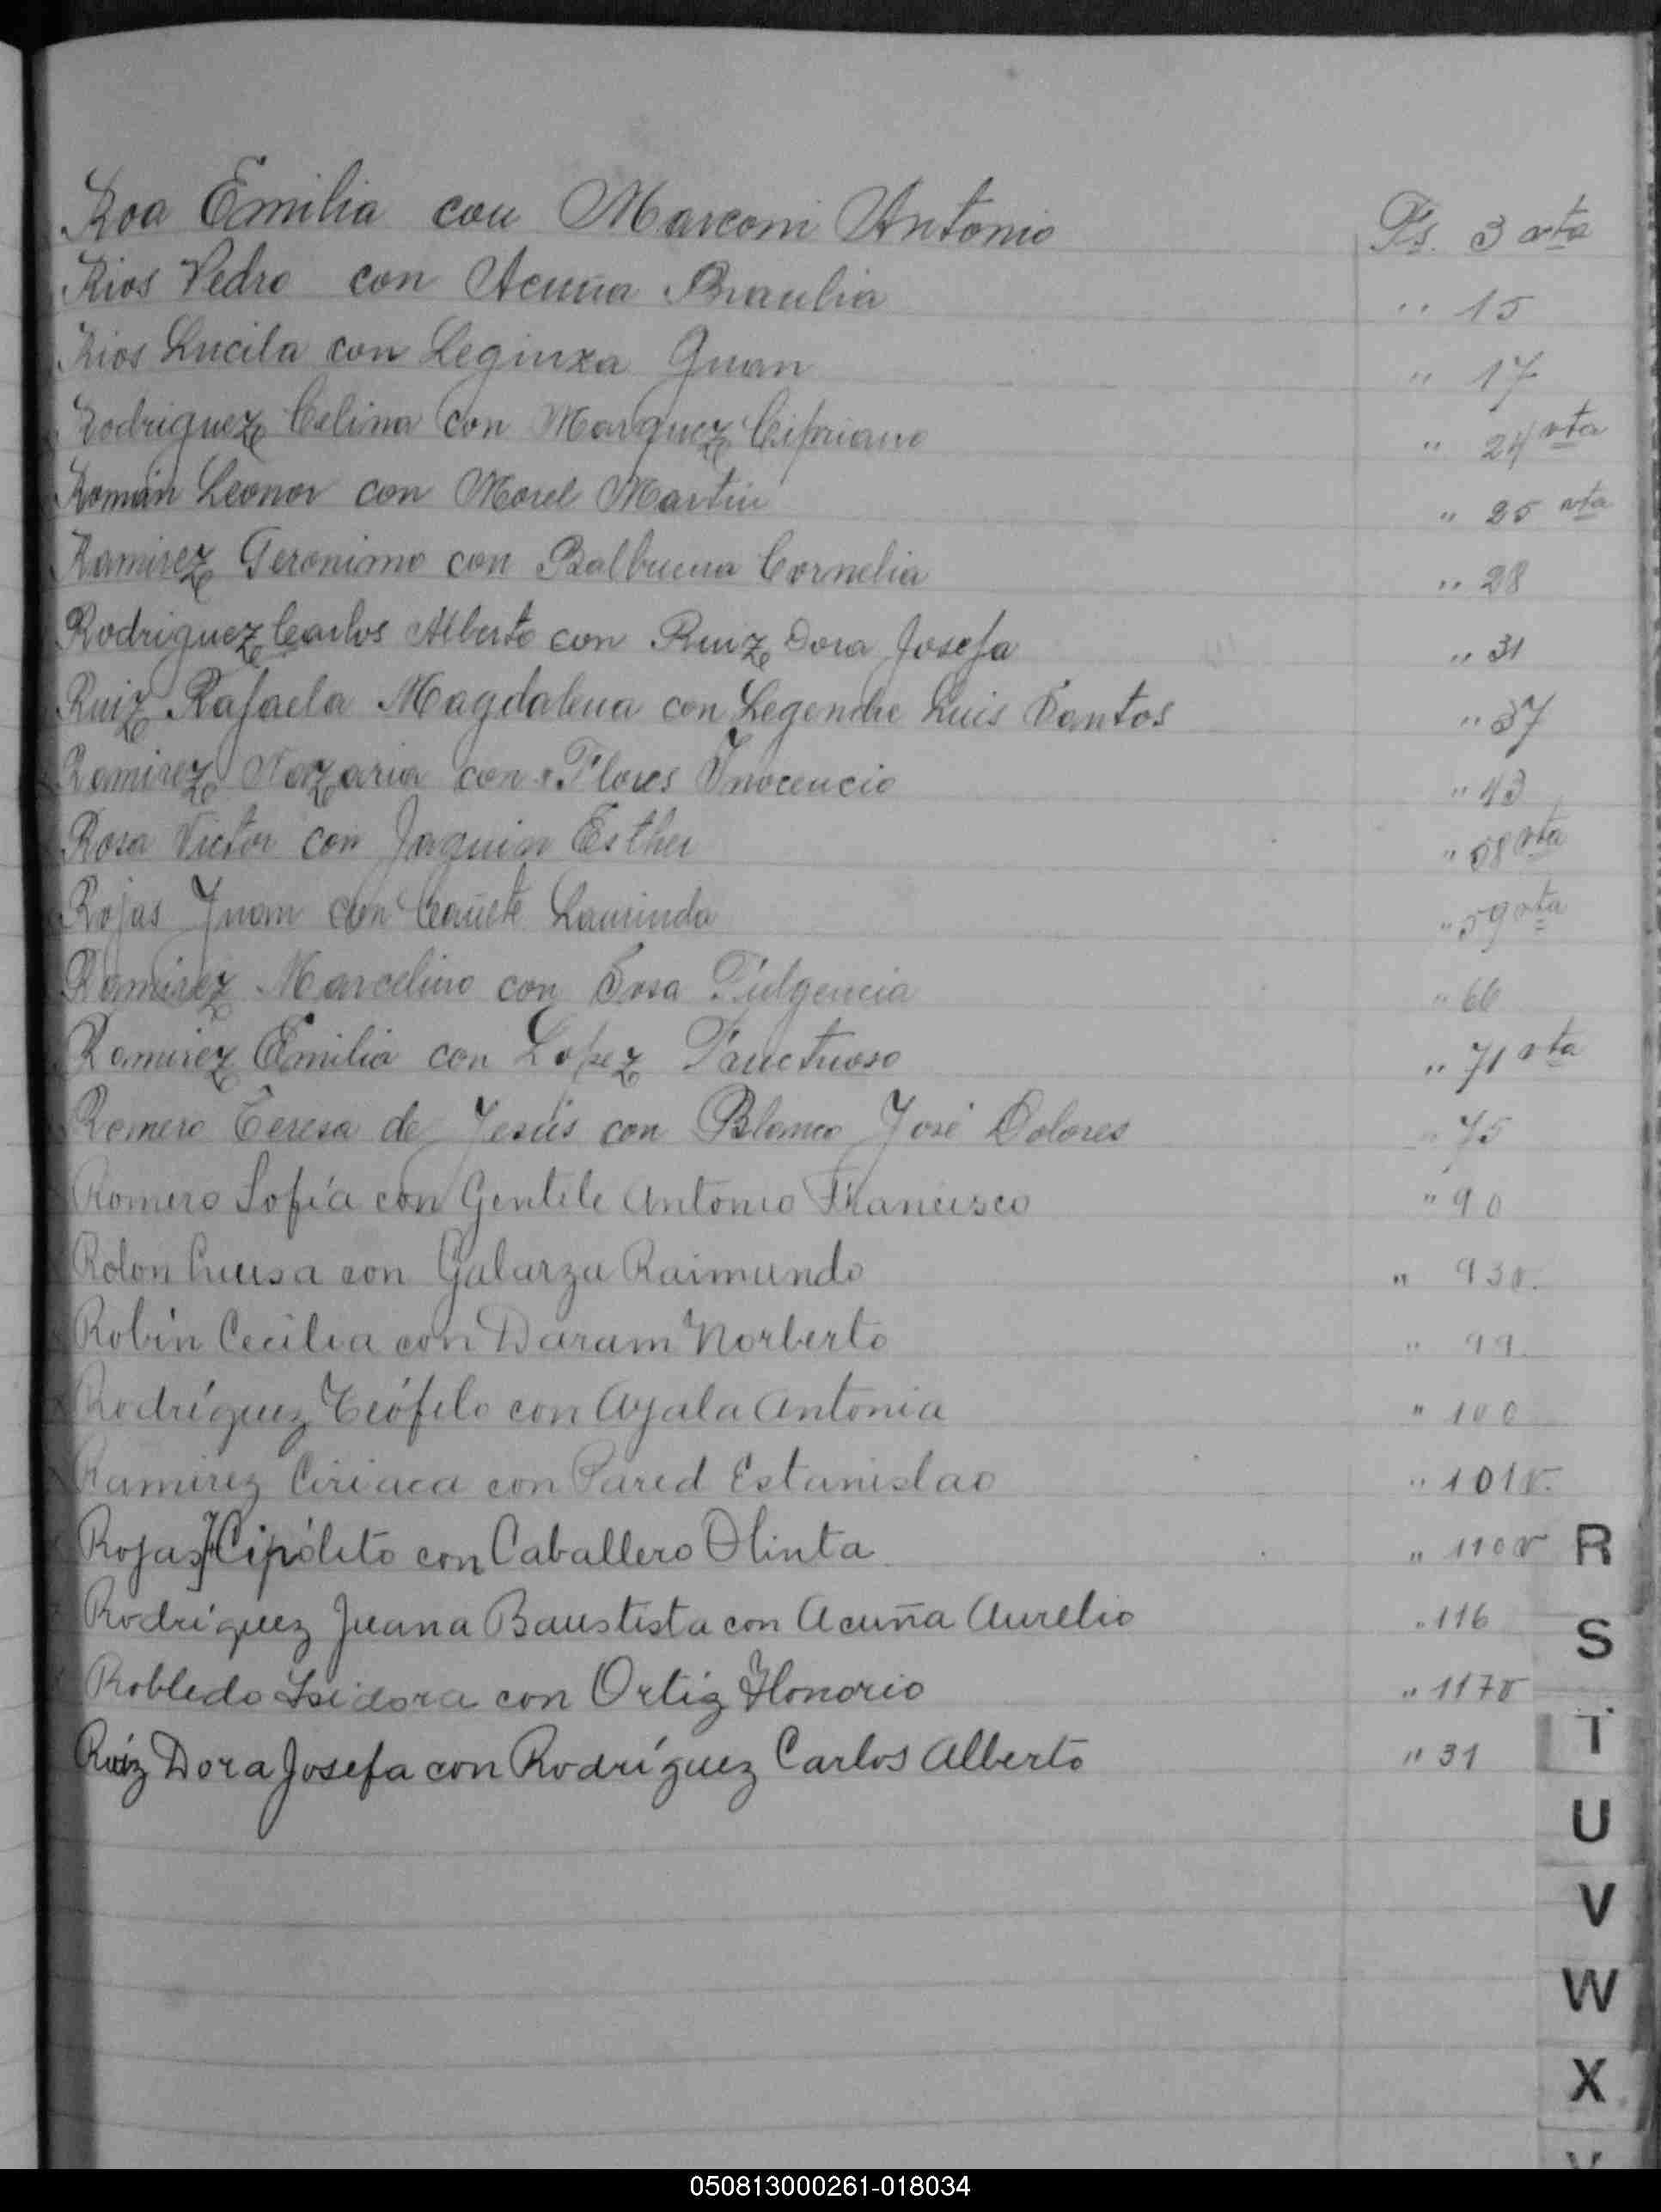 Roa Emilia con Marconi Antonio Fs. 3 vta
Rios Pedro con Acuña Braulia " 15
Rios Lucila con Leginza Juan " 17
Rodriguez Celina con Marquez Cipriano " 24 vta
Román Leonor con Morel Martin " 25 vta
Ramirez Geronimo con Balbuena Cornelia " 28
Rodriguez Carlos Alberto con Ruiz Dora Josefa " 31
Ruiz Rafaela Magdalena con Legendre Luis Santos " 37
Ramirez Nazaria con Flores Inocencio " 43
Rosa Victor con Jaquin Esther " 58 vta
Rojas Juan con Cañete Laurinda " 59 vta
Ramirez Marcelino con Sosa Fulgencia " 66
Ramirez Emilia con Lopez Fructuoso " 71 vta
Romero Teresa de Jesús con Blanco José Dolores " 75
Romero Sofía con Gentile Antonio Francisco " 90
Rolon Luisa con Galarza Raimundo " 93v.
Robin Cecilia con Daram Norberto " 99
Rodríguez Teófilo con Ayala Antonia " 100
Ramirez Ciriaca con Pared Estanislao " 101v.
Rojas Hipólito con Caballero Olinta " 110v R
Rodríguez Juana Baustista con Acuña Aurelio " 116
S
Robledo Isidora con Ortiz Honorio " 117v
T
Ruiz Dora Josefa con Rodríguez Carlos Alberto " 31
U
V
W
X
050813000261-018034